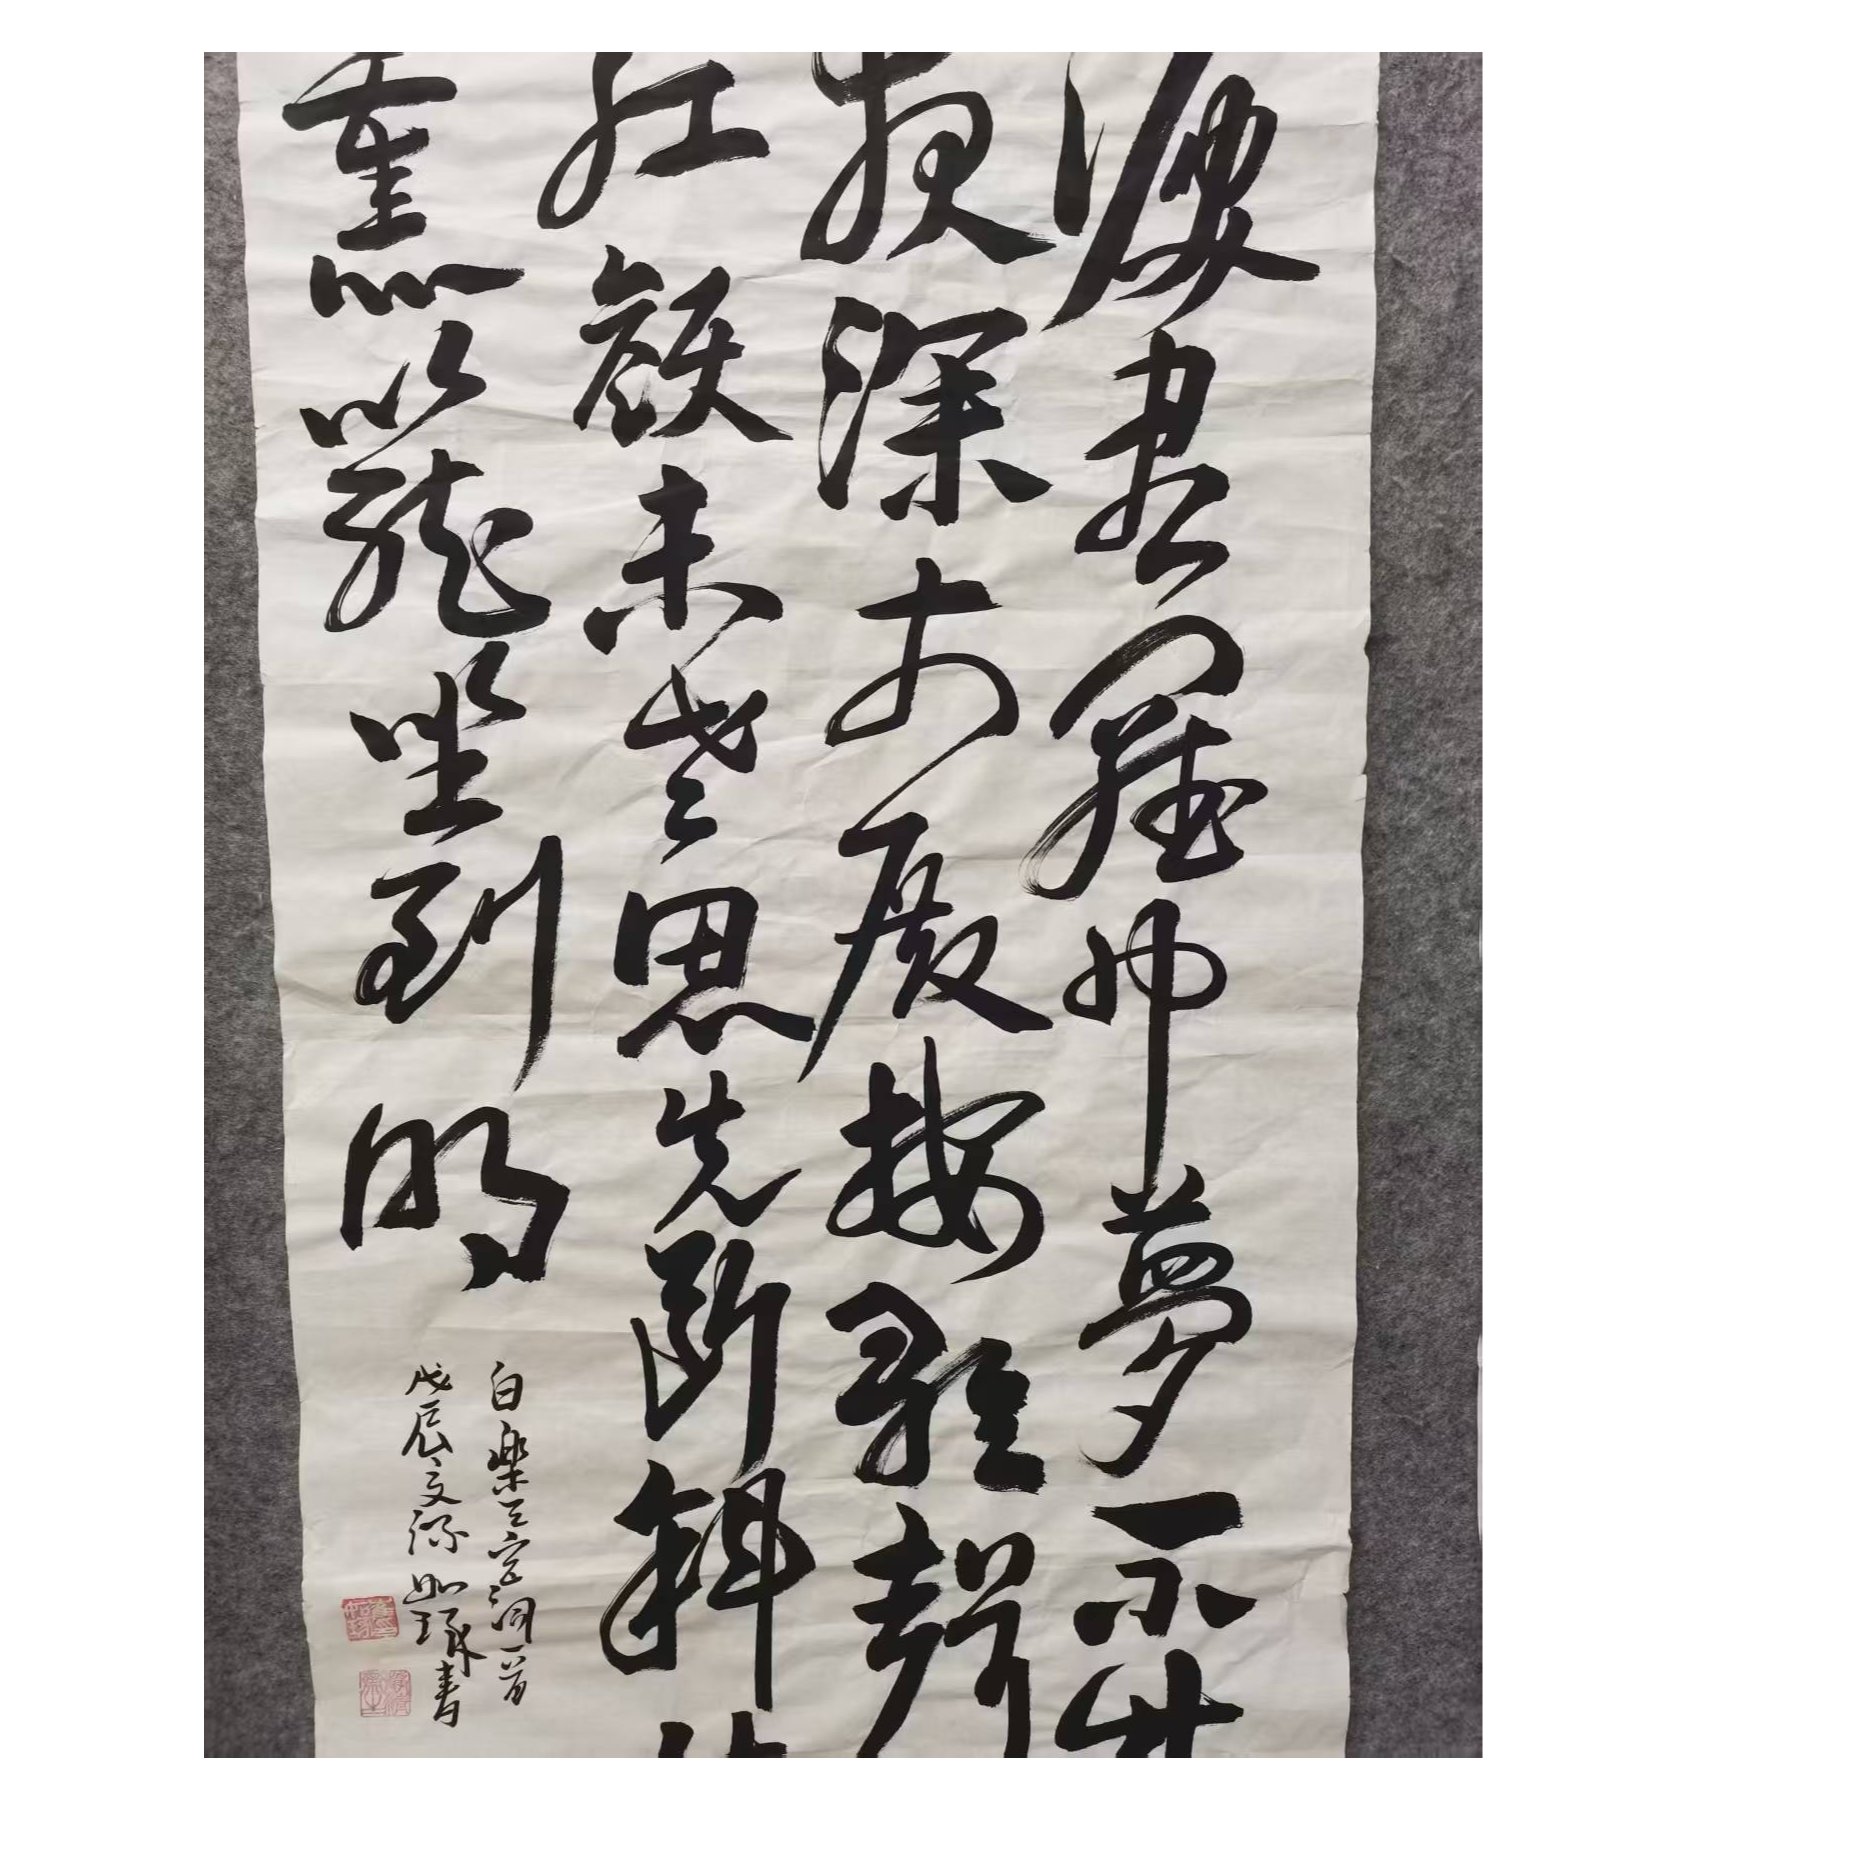 淚盡羅巾夢不成
夜深前殿按歌聲
紅顏未老恩先斷斜
薰籠坐到明
白樂天宮詞一首
戊辰如琢書